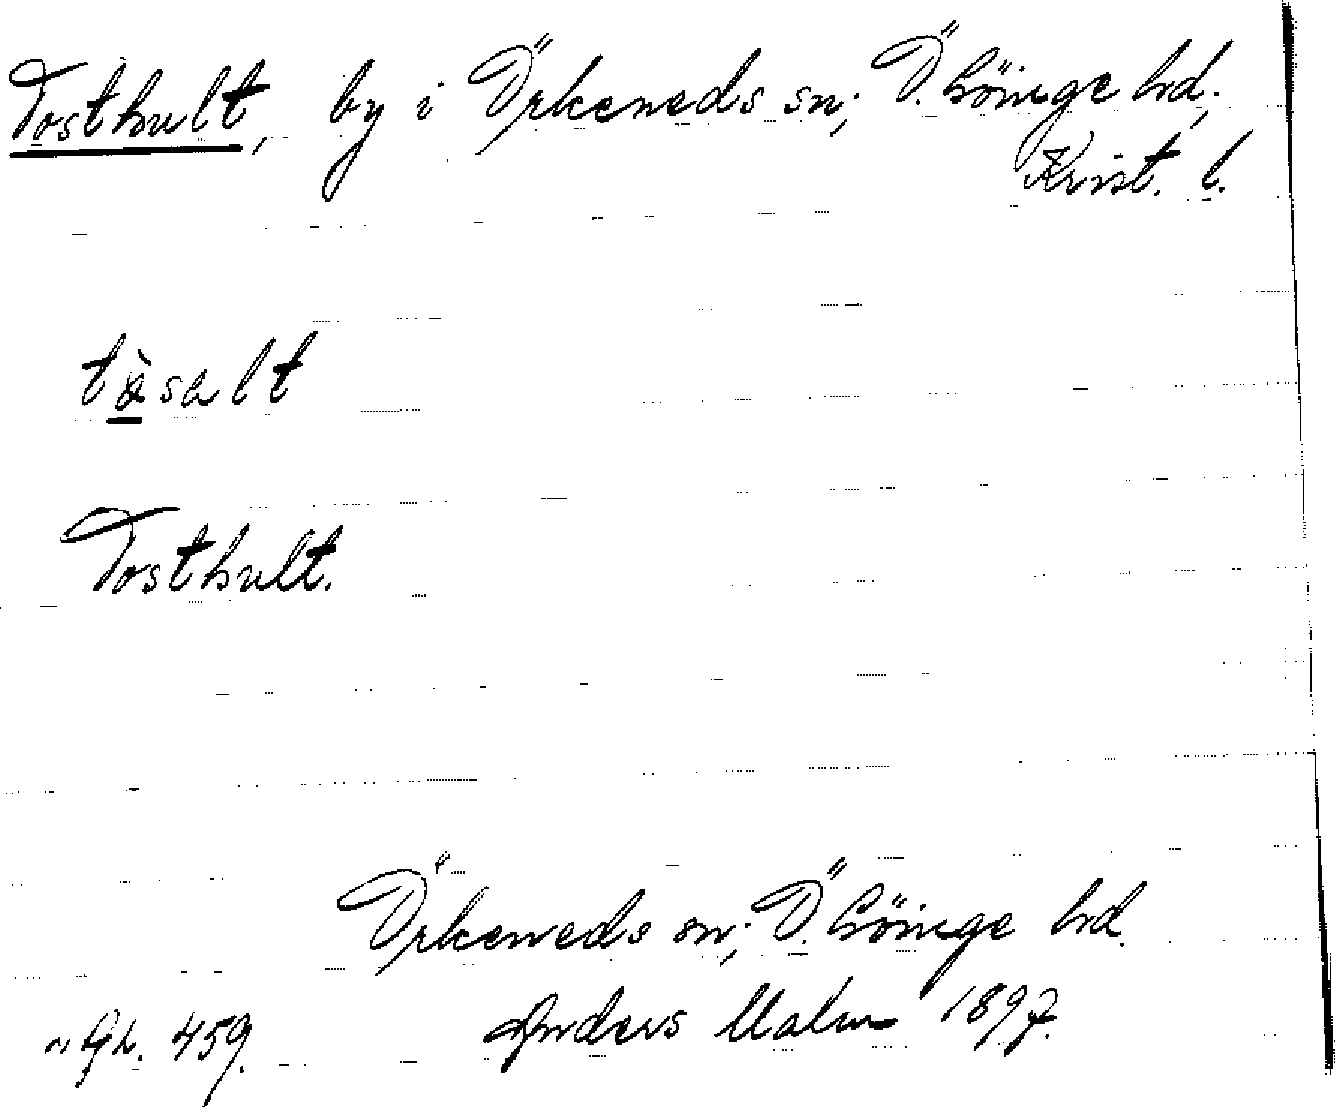 Tosthult, by i Örkeneds sn; Ö. Göinge hd,
Krist. l.
Tosthult.
Örkeneds sn; Ö. Göinge hd.
459. Anders Malm 1897.